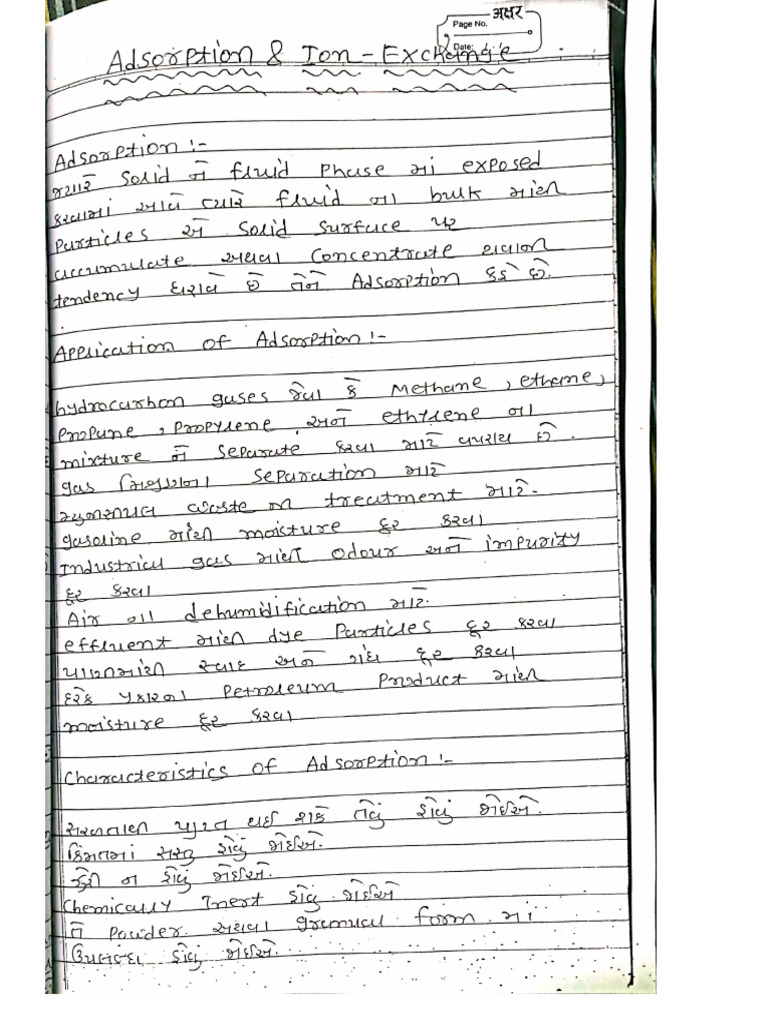 अक्षर
Page No.
Date:
Adsorption & Ion-Exchange
Adsorption :-
જ્યારે Solid ને fluid Phase માં exposed
કરવામાં આવે ત્યારે fluid ના bulk માંના
Particles એ Solid surface પર
accumulate અથવા Concentrate થવાની
tendency ધરાવે છે તેને Adsorption કહે છે.
Application of Adsorption :-
hydrocarbon gases જેવા કે Methane, ethane,
Propane, Propylene અને ethylene ના
mixture ને Separate કરવા માટે વપરાય છે.
gas મિશ્રણના Separation માટે
waste ના treatment માટે.
gasoline માંથી moisture દૂર કરવા
Industrial gas માંથી Odour અને impurity
દૂર કરવા
Air ના dehumidification માટે.
effluent માંથી dye Particles દૂર કરવા
પાણીમાંથી સ્વાદ અને ગંધ દૂર કરવા
દરેક પ્રકારના Petroleum Product માંથી
moisture દૂર કરવા
Characteristics of Adsorption :-
સરળતાથી પ્રાપ્ત થઈ શકે તેવું હોવું જોઈએ.
કિંમતમાં સસ્તુ હોવું જોઈએ.
ઝેરી ન હોવું જોઈએ.
Chemically Inert હોવું જોઈએ
તે Powder અથવા granual form માં
ઉપલબ્ધ હોવું જોઈએ.